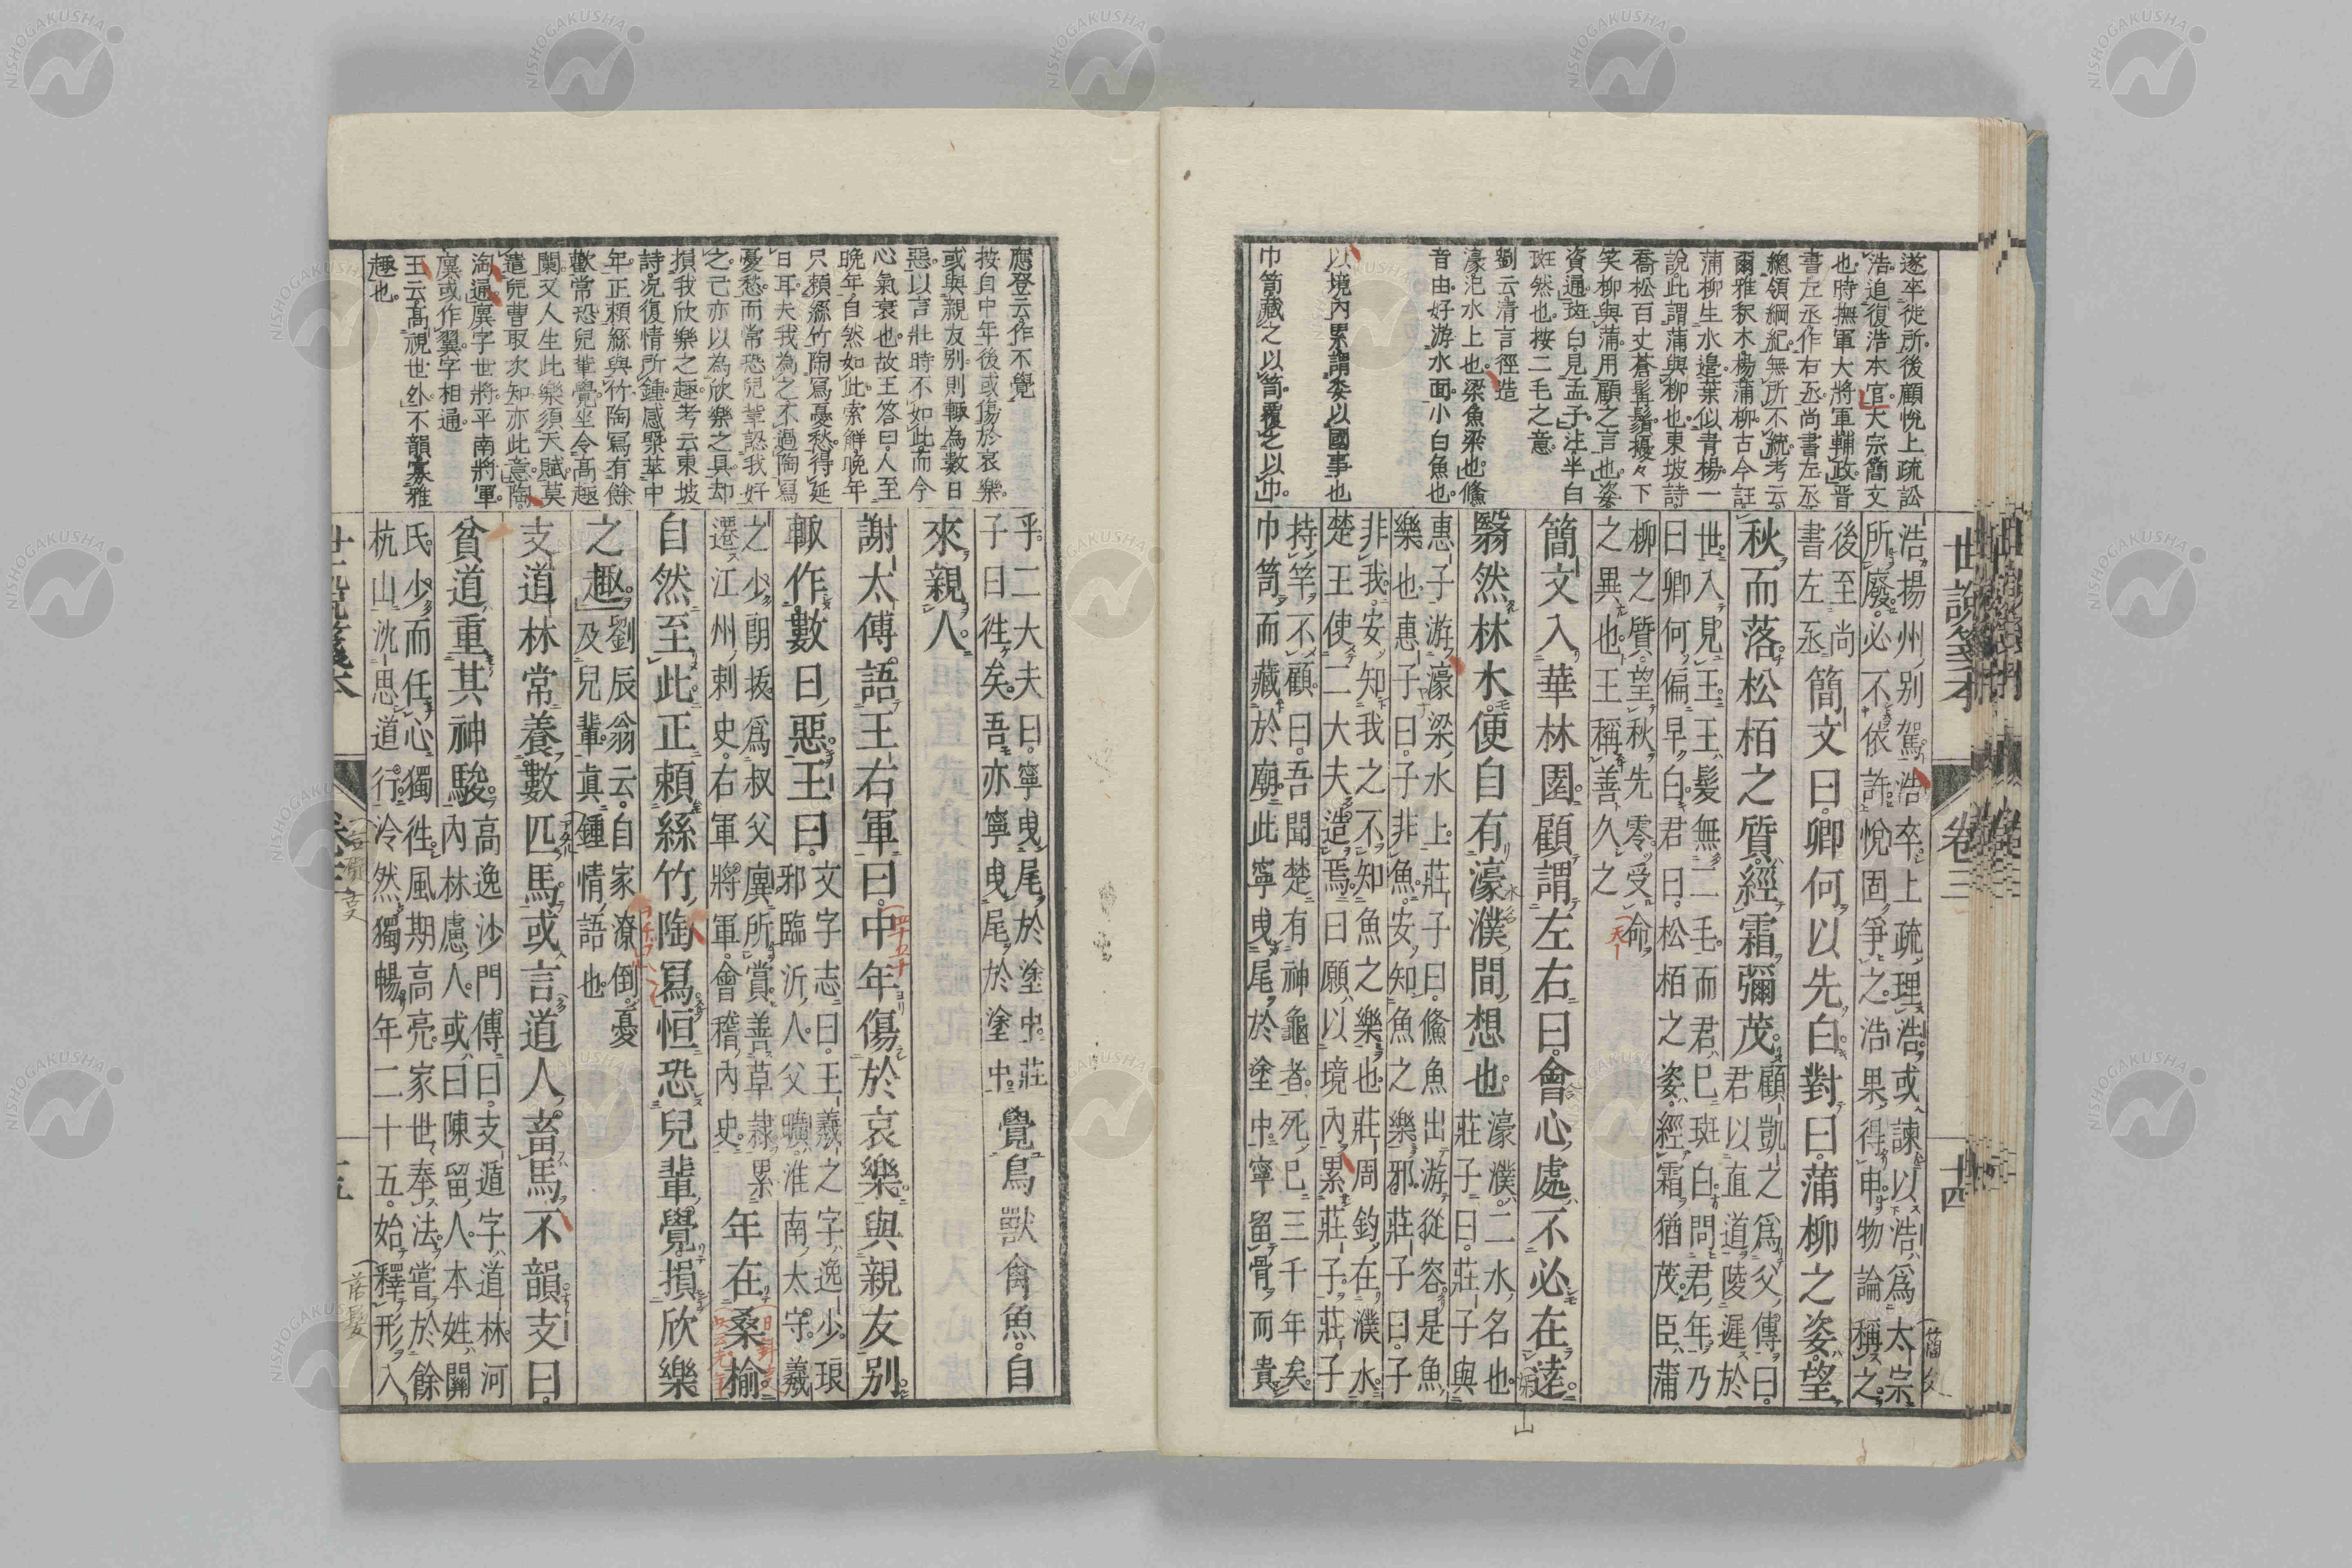 遂卒徙所後顧悅上疏訟
浩追復浩本官大宗簡文
也時撫軍大將軍輔政晋
書左丞作右丞尚書左丞
總領綱紀無所不統考云
爾雅釈木楊蒲柳古今註
蒲柳生水邉葉似青楊一
說此謂蒲與柳也東坡詩
喬松百丈蒼髯鬚擾々下
笑柳與蒲用顧之言也姿
資通斑白見孟子注半白
斑然也按二毛之意
劉云清言徑造
濠汜水上也梁魚梁也鯈
音由好游水面小白魚也
以境內累謂委以國事也
巾笥藏之以笥覆之以巾
世說箋本 卷三 十四
浩揚州別駕浩卒上疏理浩或諫以浩爲太宗
所廢必不依許悅固爭之浩果得申物論稱之
後至尚
書左丞
簡文曰卿何以先白對曰蒲柳之姿望
秋而落松栢之質經霜彌茂
顧凱之爲父傳曰
君以直道陵遲於
世入見王王髮無二毛而君已斑白問君年乃
曰卿何偏早白君曰松栢之姿經霜猶茂臣蒲
柳之質望秋先零受命
之異也王稱善久之
簡文入華林園顧謂左右曰會心處不必在遠
翳然林水便自有濠濮間想也
濠濮二水名也
莊子曰莊子與
惠子游濠梁水上莊子曰鯈魚出游從容是魚
樂也惠子曰子非魚安知魚之樂邪莊子曰子
非我安知我之不知魚之樂也莊周釣在濮水
楚王使二大夫造焉曰願以境內累莊子莊子
持竿不顧曰吾聞楚有神龜者死已三千年矣
巾笥而藏於廟此寧曳尾於塗中寧留骨而貴
應登云作不覺
按自中年後或傷於哀樂
或與親友別則輙為數日
惡以言壯時不如此而今
心氣衰也故王答曰人至
晚年自然如此索解晚年
只頼絲竹陶寫憂愁得延
日耳夫我為之不過陶寫
憂愁而常恐兒輩認我好
之己亦以為欣樂之具却
損我欣樂之趣考云東坡
詩况復情所鍾感槩萃中
年正頼絲與竹陶寫有餘
歡常恐兒輩覺坐令高趣
闌又人生此樂須天賦莫
遣兒曹取次知亦此意陶
淘通廙字世將平南將軍
廙或作翼字相通
王云高視世外不韻寡雅
趣也
乎二大夫曰寧曳尾於塗中莊
子曰徃矣吾亦寧曳尾於塗中
覺鳥獸禽魚自
來親人
謝太傅語王右軍曰中年傷於哀樂與親友別
輙作數日惡王曰
文字志曰王羲之字逸少琅
邪臨沂人父曠淮南太守羲
之少朗拔爲叔父廙所賞善草隷累
遷江州刺史右軍將軍會稽內史
年在桑榆
自然至此正頼絲竹陶寫恒恐兒輩覺損欣樂
之趣
劉辰翁云自家潦倒憂
及兒輩真鍾情語也
支道林常養數匹馬或言道人畜馬不韻支曰
貧道重其神駿
高逸沙門傳曰支遁字道林河
內林慮人或曰陳留人本姓關
氏少而任心獨徃風期高亮家世奉法嘗於餘
杭山沈思道行泠然獨暢年二十五始釋形入